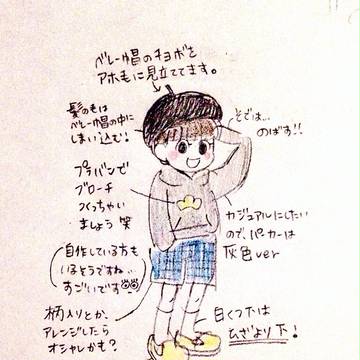 ベレー帽のチョボを
アホ毛に見立ててます。
髪の毛は
ベレー帽の中に
しまい込む!
そでは…
のばす!!
プラバンで
ブローチ
つくっちゃい
ましょう 笑
カジュアルにしたい
ので、パーカーは
灰色ver
自作している方も
いるそうですね…
すごいです
柄入りとか、
アレンジしたら
オシャレかも?
白くつ下は
ひざより下!